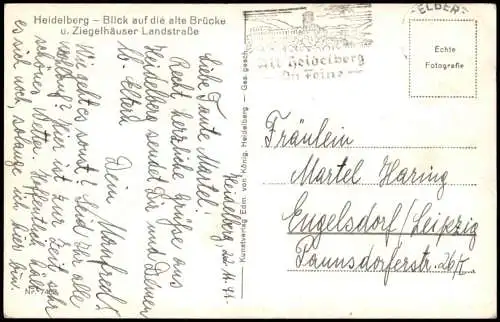 Heidelberg – Blick auf die alte Brücke
u. Ziegelhäuser Landstraße
Heidelberg 22.11.41.
Liebe Tante Martel!
Recht herzliche Grüße aus
Heidelberg sendet Dir und Deinen
lb. Eltern
Dein Manfred.
Wie geht es sonst? Sind Ihr alle
wohlauf? Hier ist zur Zeit sehr
schönes Wetter. Hoffentlich hält
es sich noch, solange ich hier bin.
Nr. 74
Kunstverlag Edm. von König, Heidelberg – Ges. gesch.
Alt Heidelberg
Du Feine
Echte
Fotografie
Fräulein
Martel Haring
Engelsdorf/Leipzig
Paunsdorferstr. 26/I